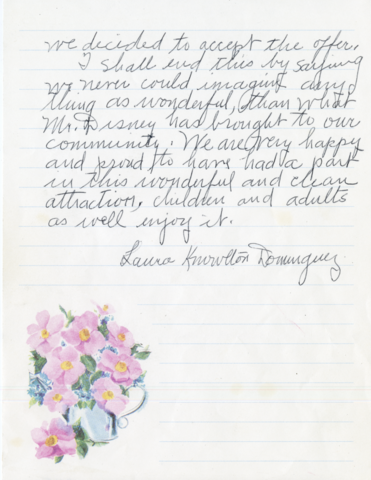 we decided to accept the offer.
I shall end this by saying
we never could imagine any
thing as wonderful, than what
Mr. Disney has brought to our
community. We are very happy
and proud to have had a part
in this wonderful and clean
attraction, children and adults
as well enjoy it.
Laura Knowlton Dominguez